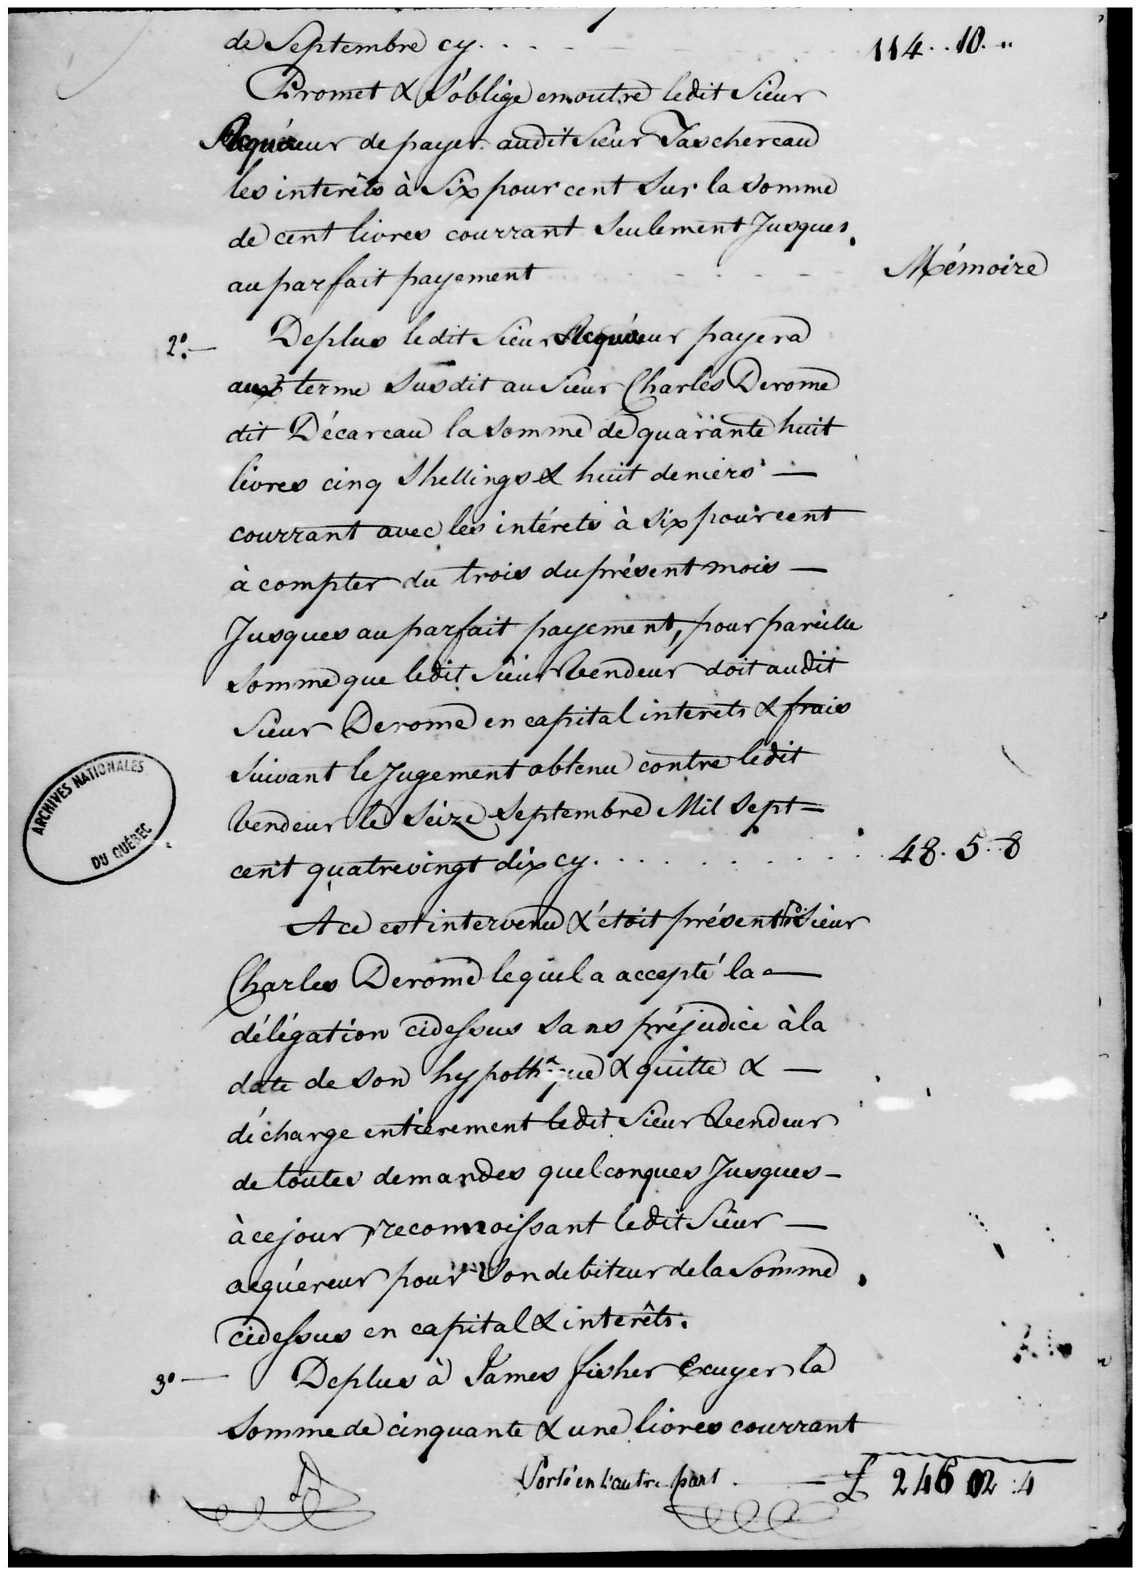 de Septembre cy. . . 114. . 10. "
Promet & S'oblige en outre ledit Sieur
Acquéreur de payer audit Sieur Taschereau
les interêts à Six pour cent Sur la Somme
de cent livres courrant Seulement Jusques
au parfait payement Mémoire
2º. — De plus ledit Sieur Acquéreur payera
aux terme Susdit au Sieur Charles Derome
dit Décareau la Somme de quarante huit
livres cinq Shellings & huit deniers —
courrant avec les intérets à Six pour cent
à compter du trois du présent mois —
Jusques au parfait payement, pour pareille
Somme que ledit Sieur Vendeur doit audit
Sieur Derome en capital interets & frais
Suivant le Jugement obtenu contre ledit
Vendeur le Seize Septembre Mil Sept =
cent quatrevingt dix cy. . . . . . . . . . 48. 5. 8
ARCHIVES NATIONALES
DU QUÉBEC
A ce est intervenu & étoit présent le Sieur
Charles Derome lequel a accepté la —
délégation cidessus sans préjudice à la
date de son hypothèque & quitte & —
décharge entiérement ledit Sieur Vendeur
de toutes demandes quelconques Jusques —
à ce jour reconnoissant ledit Sieur —
acquéreur pour Son debiteur de la Somme
cidessus en capital & interêts.
3º — De plus à James fisher Ecuyer la
Somme de cinquante & une livres courrant
Porté en l'autre part . — £ 246 02 : 4